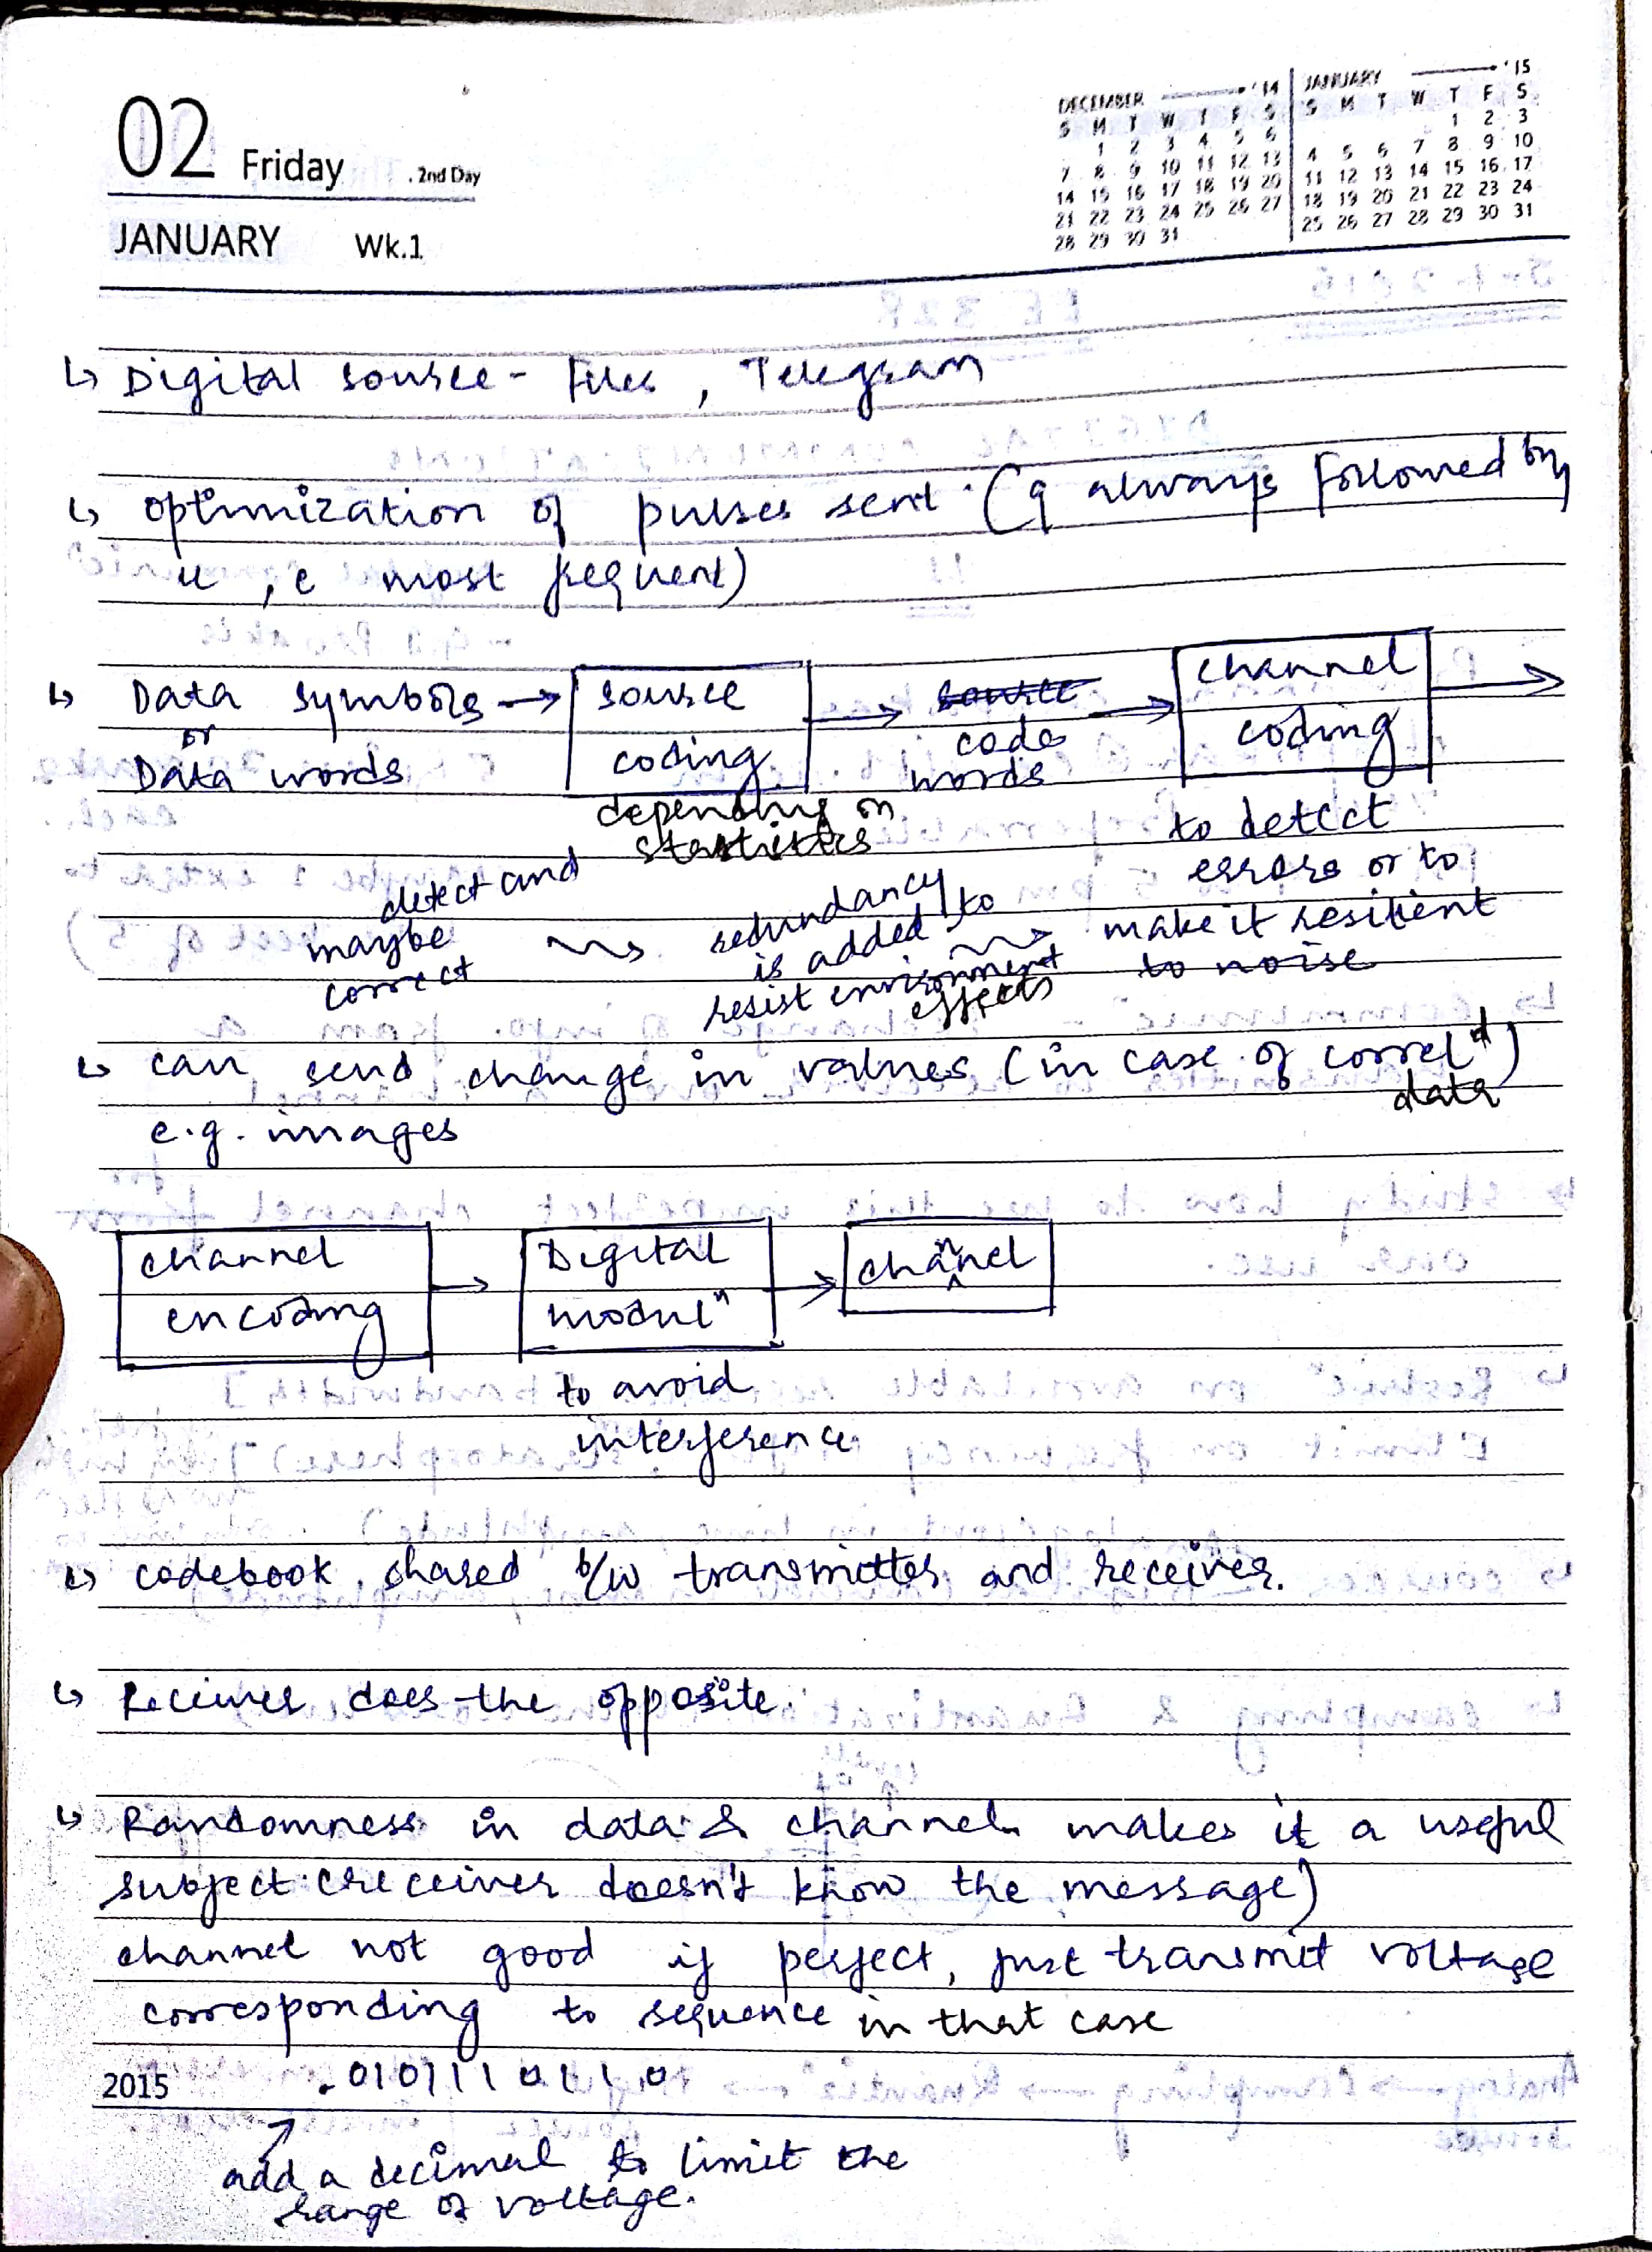 02 Friday . 2nd Day
JANUARY Wk.1
DECEMBER '14
S M T W T F S
1 2 3 4 5 6
7 8 9 10 11 12 13
14 15 16 17 18 19 20
21 22 23 24 25 26 27
28 29 30 31
JANUARY '15
S M T W T F S
1 2 3
4 5 6 7 8 9 10
11 12 13 14 15 16 17
18 19 20 21 22 23 24
25 26 27 28 29 30 31
↳ Digital source - Files , Telegram
↳ optimization of pulses sent (q always followed by
u , e most frequent)
↳ Data symbols → source coding → code words → channel coding →
or
Data words
depending on
statistics
to detect
errors or to
make it resilient
to noise
redundancy
is added to
resist environment
effects
detect and
maybe
correct
↳ can send change in values (in case of correlᵈ)
data
e.g. images
channel encoding → Digital modulⁿ → channel
to avoid
interference
↳ codebook shared b/w transmitter and receiver.
↳ Receiver does the opposite.
↳ Randomness in data & channel makes it a useful
subject (receiver doesn't know the message)
channel not good if perfect, just transmit voltage
corresponding to sequence in that case
2015 .01011101110
↗
add a decimal to limit the
range of voltage.